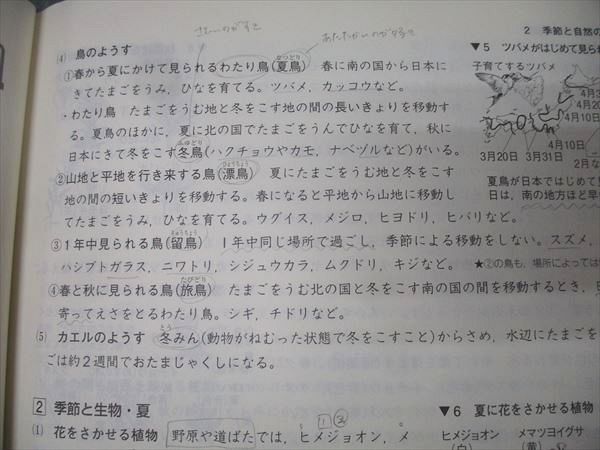 さむいのがすき
あたたかいのが好き
2 季節と自然の
⑷ 鳥のようす
①春から夏にかけて見られるわたり鳥(夏鳥) 春に南の国から日本に
なつどり
きてたまごをうみ，ひなを育てる。ツバメ，カッコウなど。
・わたり鳥 たまごをうむ地と冬をこす地の間の長いきょりを移動す
る。夏鳥のほかに，夏に北の国でたまごをうんでひなを育て，秋に
日本にきて冬をこす冬鳥(ハクチョウやカモ，ナベヅルなど)がいる。
ふゆどり
②山地と平地を行き来する鳥(漂鳥) 夏にたまごをうむ地と冬をこす
ひょうちょう
地の間の短いきょりを移動する。春になると平地から山地に移動し
てたまごをうみ，ひなを育てる。ウグイス，メジロ，ヒヨドリ，ヒバリなど。
③1年中見られる鳥(留鳥) 1年中同じ場所で過ごし，季節による移動をしない。スズメ，
りゅうちょう
ハシブトガラス，ニワトリ，シジュウカラ，ムクドリ，キジなど。
④春と秋に見られる鳥(旅鳥) たまごをうむ北の国と冬をこす南の国の間を移動するとき，
たびどり
寄ってえさをとるわたり鳥。シギ，チドリなど。
⑸ カエルのようす 冬みん(動物がねむった状態で冬をこすこと)からさめ，水辺にたまごを
とう
ごは約2週間でおたまじゃくしになる。
2 季節と生物・夏
⑴ 花をさかせる植物 野原や道ばたでは，ヒメジョオン，メ
1 2
▼5 ツバメがはじめて見られ
子育てするツバメ
4月3
4月20
4月10
4月10日
3月20日 3月31日
2月な
夏鳥が日本ではじめて見
日は，南の地方ほど早
★②の鳥も，場所によっては
▼6 夏に花をさかせる植物
ヒメジョオン メマツヨイグサ
(白) (黄)